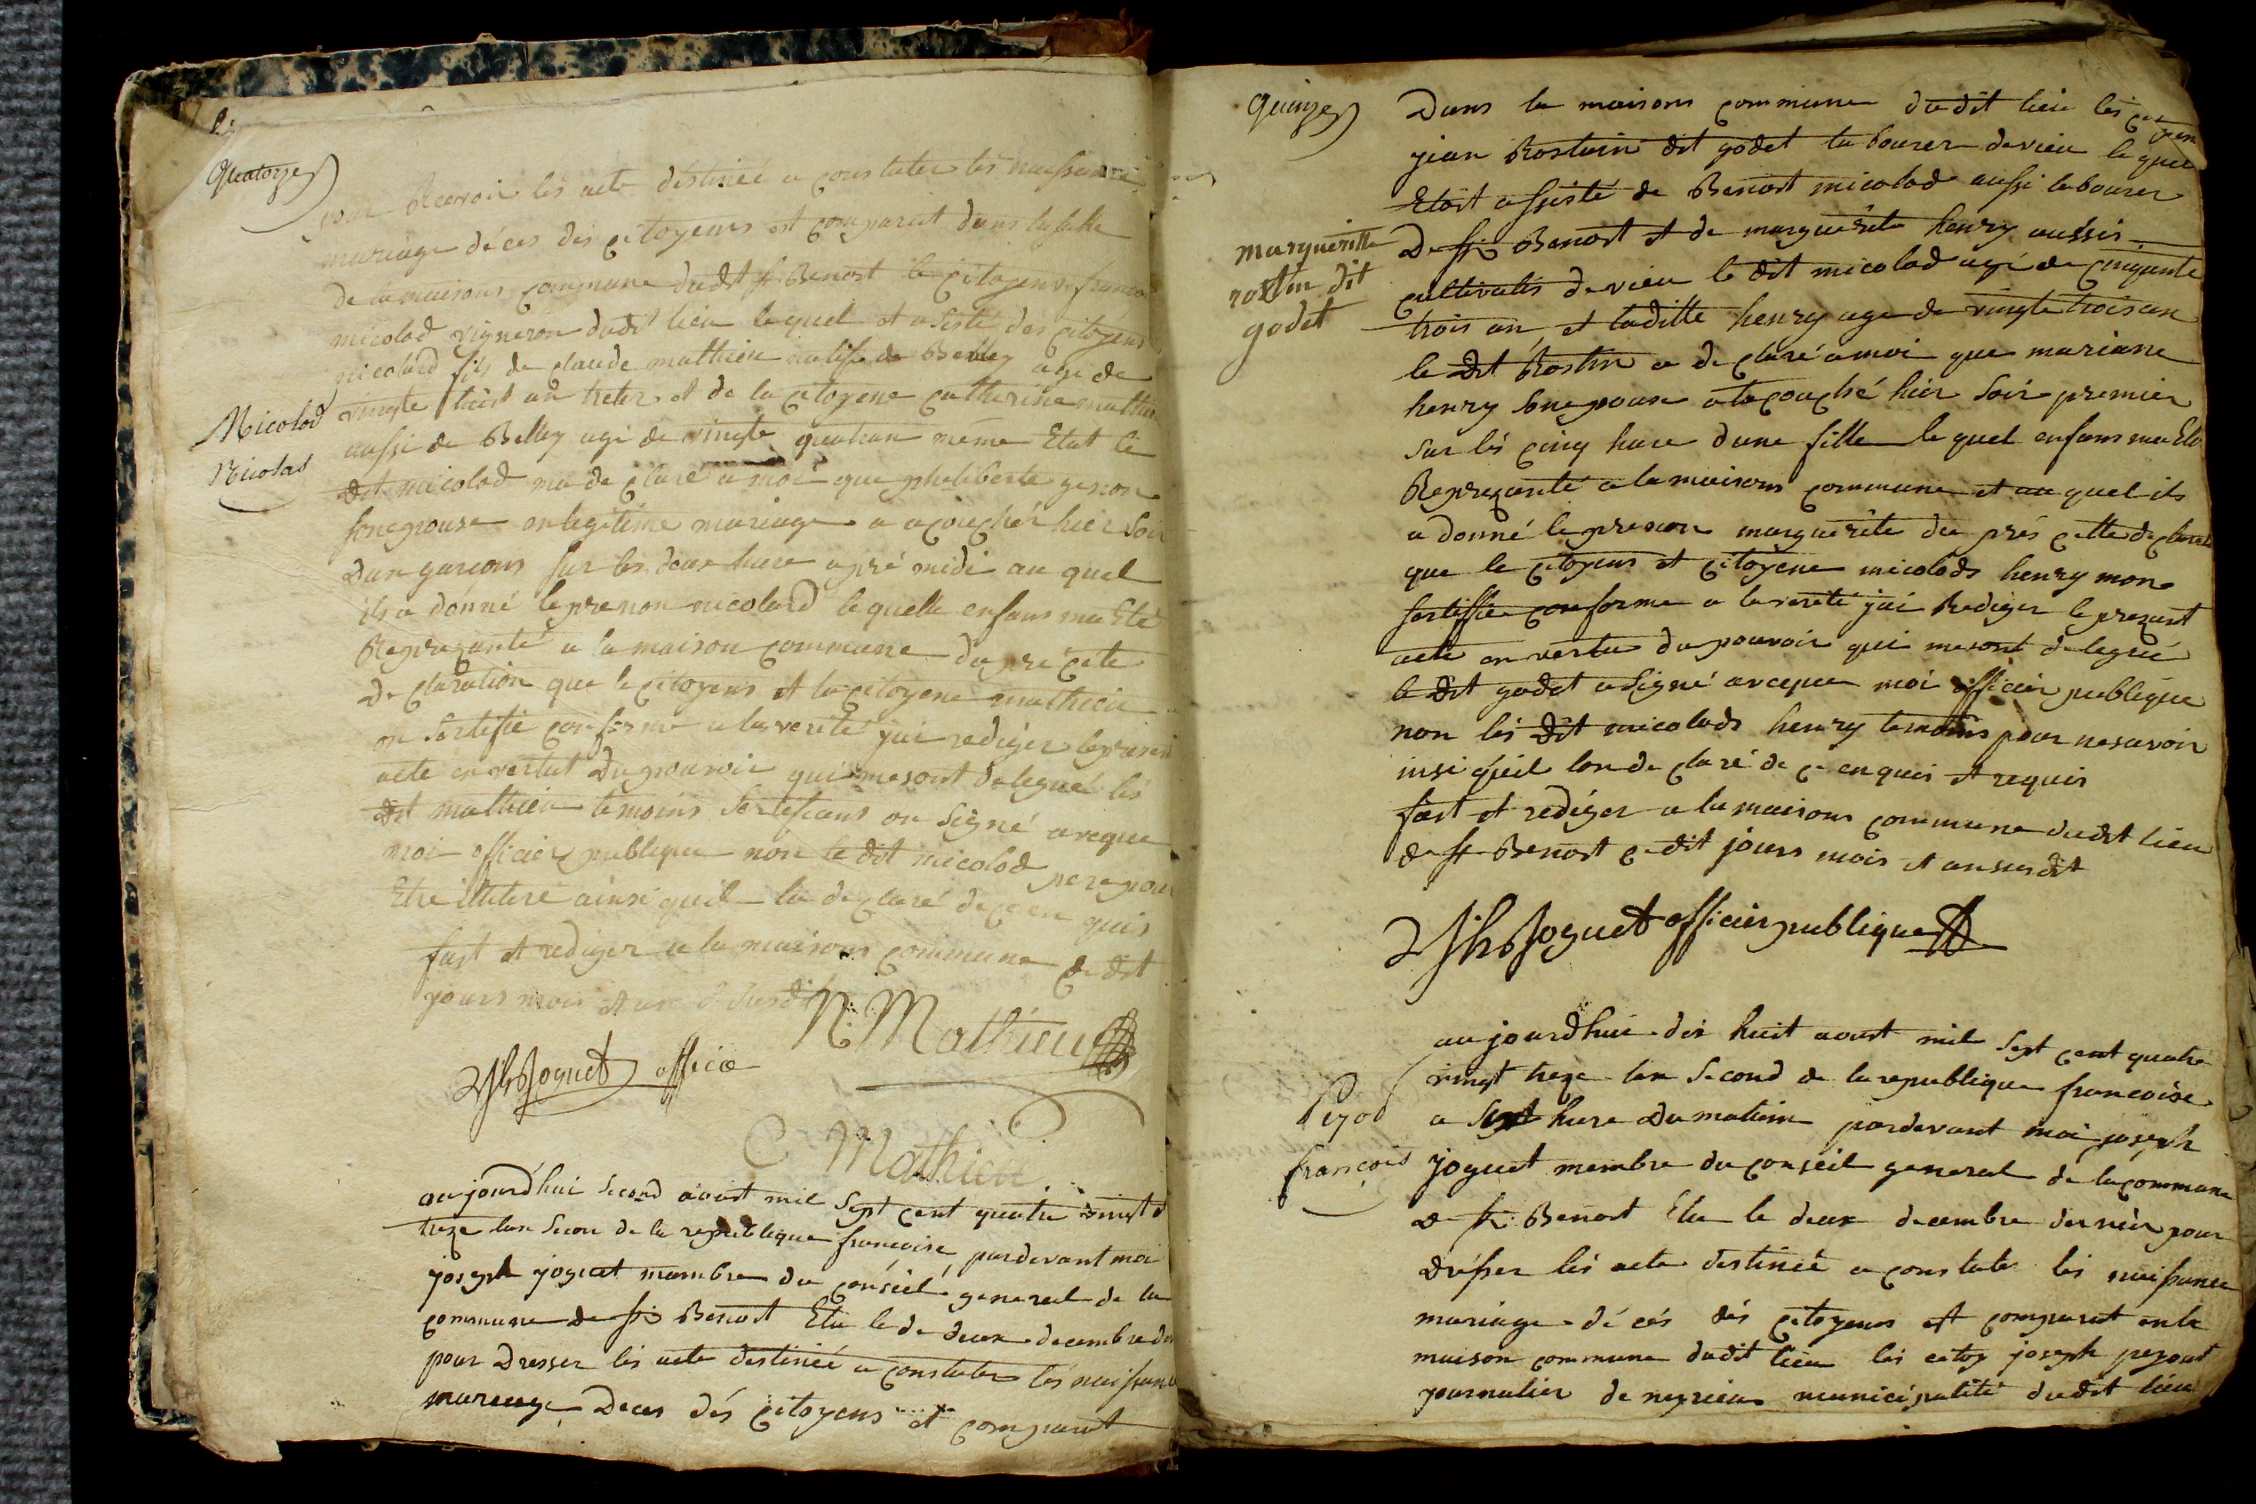 quatorze
pour Recevoir les acte destineé a constater les naissance
mariage déces des citoyens est comparut dans la salle
de la maisons commune dudit st Benoit le citoyens franco
micolod vigneron dudit lieu lequel et asisté des citoyens
nicolard fils de claude mathieu natife de Belley age de
vingte huit an et de la citoyene catherine mathieu
Micolod
Nicolas
aussi de Belley age de vingte quatran meme Etat le
dit micolod ma de claré a moi que pheliberte genon
sonepouse en legitime mariage a acouché hier soir
dun garcons sur les deux hure apré midi au quel
ils a donné le prenon nicolard le quelle enfans ma Eté
Reprezanté a la maison commune du pré cete
de claration que le citoyens et la citoyene mathieu
on sertifié conforme a la verité jai rediger le presen
acte en vertut du pouvoir qui mesont delegué les
dit mathieu temoins sertifians on signé aveque
moi officier publique non le dit micolod pere pour
Etre illitere ainsi queil la de claré de ce en quis
fast et rediger a la maisons commune ce dit
jours mois et an susdit
N. Mathieu
Jh Joguet office
C Mathieu
au jourd'hui second aoust mil sept cent quatre vingt
treze lan secon de la republique francoise, pardevant moi
joseph joguet mambre du conseil general de la
commune de st Benoit Elu le de deux decembre der
pour Dresser les acte destineé a constater les naissance
mareage Deces dés citoyens et comparut
quinze
Dans la maisons commune dudit lieu les
jean Rostain dit godet labourer devieu le quel
Etoit assisté de Benoit micolod aussi labourer
De st Benoit et de marguerite henry aussis
margueritte
rostin dit
godet
cultivatis devieu le dit micolod agé de cinquante
trois an et laditte henry age de vingte trois an
le dit Rostin a de claré a moi que mariane
henry sonepouse a tacouché hier soir premier
sur les cinq hure dune fille le quel enfans ma Eté
Reprezanté a la maisons commune et au quel ils
a donné le prenon marguerite du prés cette de clarat
que le citoyens et citoyene micolods henry mon
sertiffié conforme a la verité jai Rediger le prezant
acte en vertu du pouvoir qui mesont delegué
le dit godet a signé aveque moi officier publique
non lés dit micolods henry temoins pour nesavoir
insi queil lon de claré de ce enquis et requis
fast et rediger a la maisons commune dudit lieu
de st Benoit ce dit jours mois et an susdit
Jh Joguet officier publique
au jourdhui dix huit aoust mil sept cent quatre
vingt treze lan second de la republique francoise
Peyod
a sept hure du matein pardevant moi joseph
françois
joguet membre du conseil general de la commune
de st Benoit Elu le deux decembre dernier pour
dresser lés acte destineé a constater les naissance
mariage décés dés citoyens est comparut en la
maison commune dudit lieu les citoy joseph peyout
journalier de neprieu municipalité dudit lieu